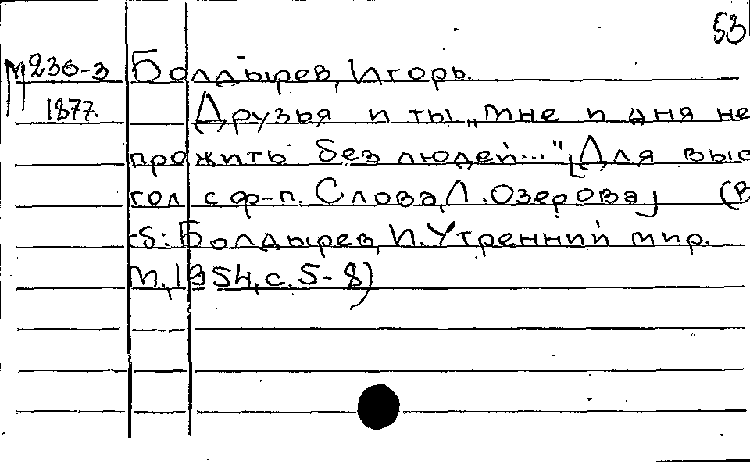 53
М 230-3 Болдырев, Игорь.
1877. Друзья и ты „Мне и дня не
прожить без людей..." [Для выс
гол с ф-п. Слова Л. Озерова] (В
сб: Болдырев, И. Утренний мир.
М, 1954, с. 5-8)